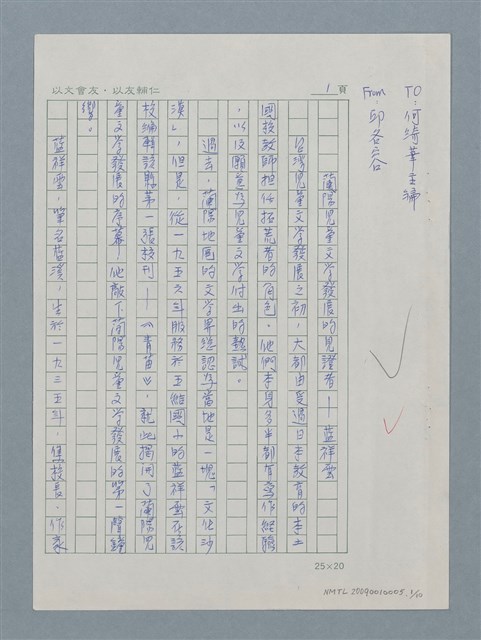 TO：何綺華主編
From：邱各容
1 頁
以文會友，以友輔仁
蘭陽兒童文學發展的見證者——藍祥雲
台灣兒童文學發展之初，大都由受過日本教育的本土
國校教師担任拓荒者的角色。他們本身多半都有寫作經驗
，以及願意為兒童文學付出的熱誠。
過去，蘭陽地區的文學界總認為當地是一塊「文化沙
漠」，但是，從一九五六年服務於五結國小的藍祥雲在該
校編輯該縣第一張校刊——《青苗》，就此揭開了蘭陽兒
童文學發展的序幕！他敲下蘭陽兒童文學發展的第一聲鐘
響。
藍祥雲，筆名藍溪，生於一九三五年，集校長、作家
25×20
NMTL 20090010005. 1/10